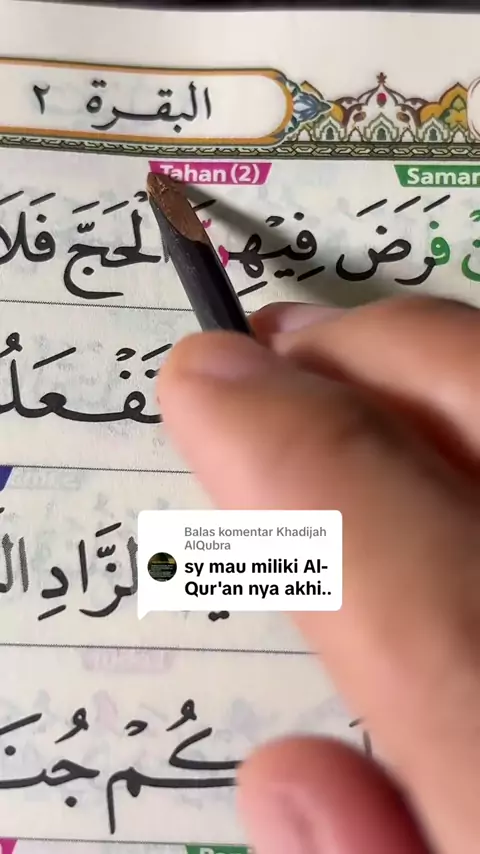 البقرة ٢
Tahan (2)
فَرَضَ فِيْهِنَّ الْحَجَّ فَلَا
الزَّادِ
كُمْ
Balas komentar Khadijah
AlQubra
sy mau miliki Al-
Qur'an nya akhi..